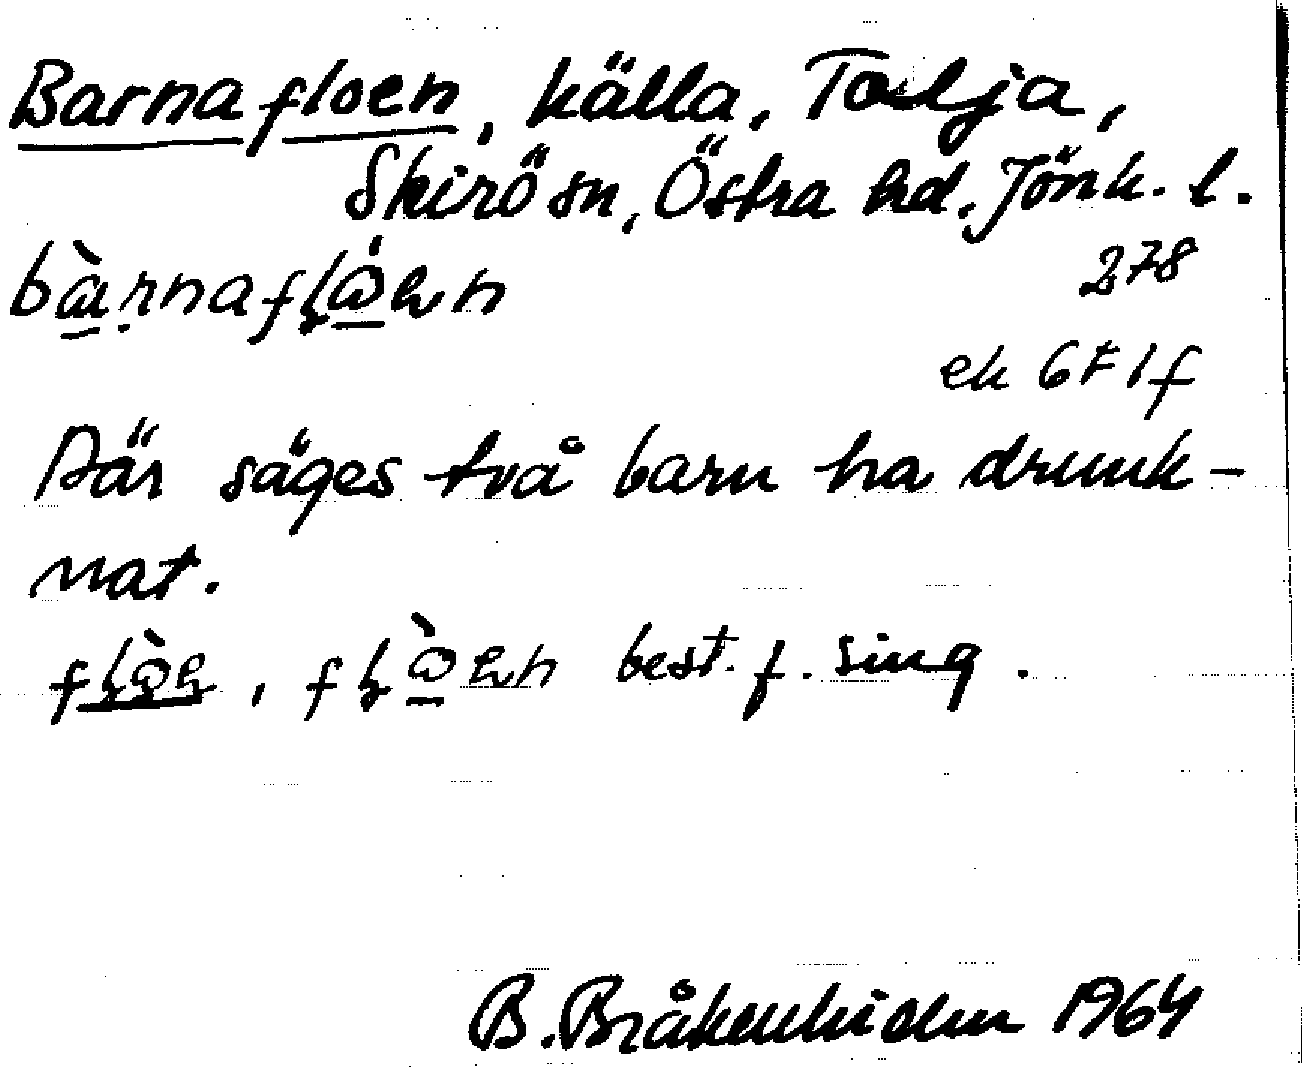 Barnafloen, källa, Talja,
Skirö sn, Östra hd. Jönk. l.
278
ek 6F1f
Där säges två barn ha drunk-
nat.
best. f. sing.
B. Bråkenhielm 1964